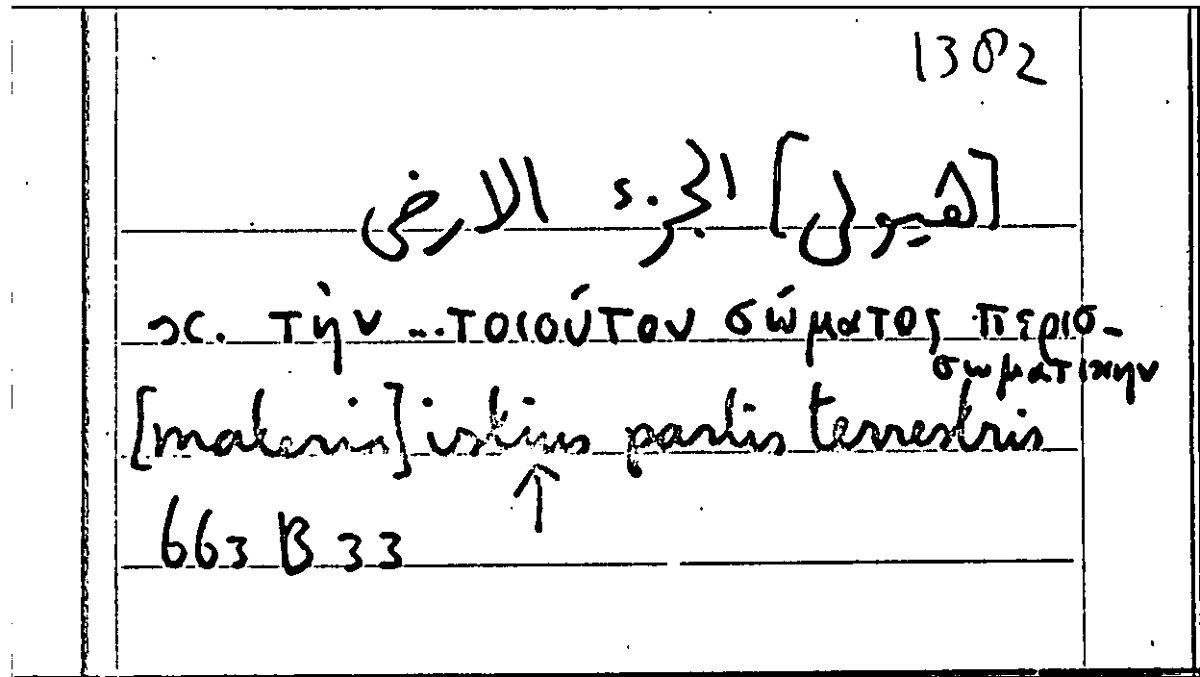 1382
[هيولى] الجزء الارضى
x. τὴν ... τοιούτου σώματος περισ-
σωματικην
[materia] istius partis terrestris
↑
663 B 33